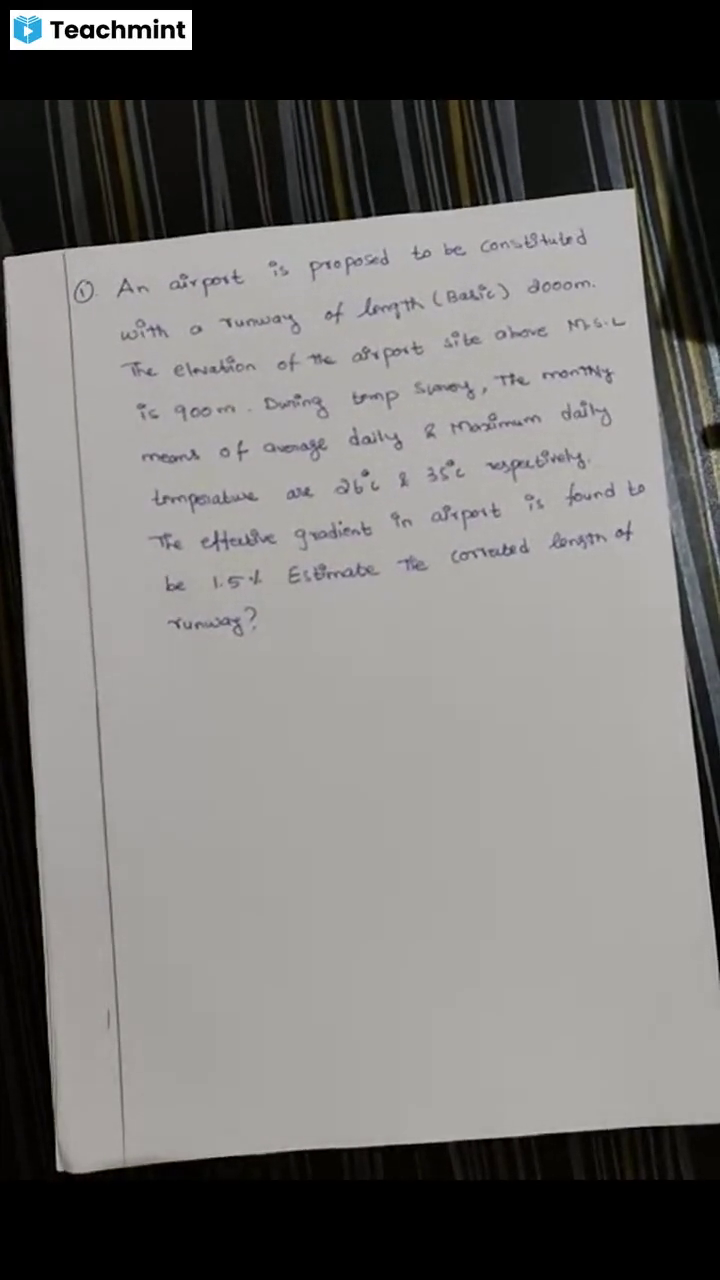 Teachmint
① An airport is proposed to be constituted
with a runway of length (Basic) 2000m.
The elevation of the airport site above M.S.L
is 900m. During temp Survey, The monthly
means of average daily & Maximum daily
temperature are 26°c & 35°c respectively.
The effective gradient in airport is found to
be 1.5% Estimate The corrected length of
runway?